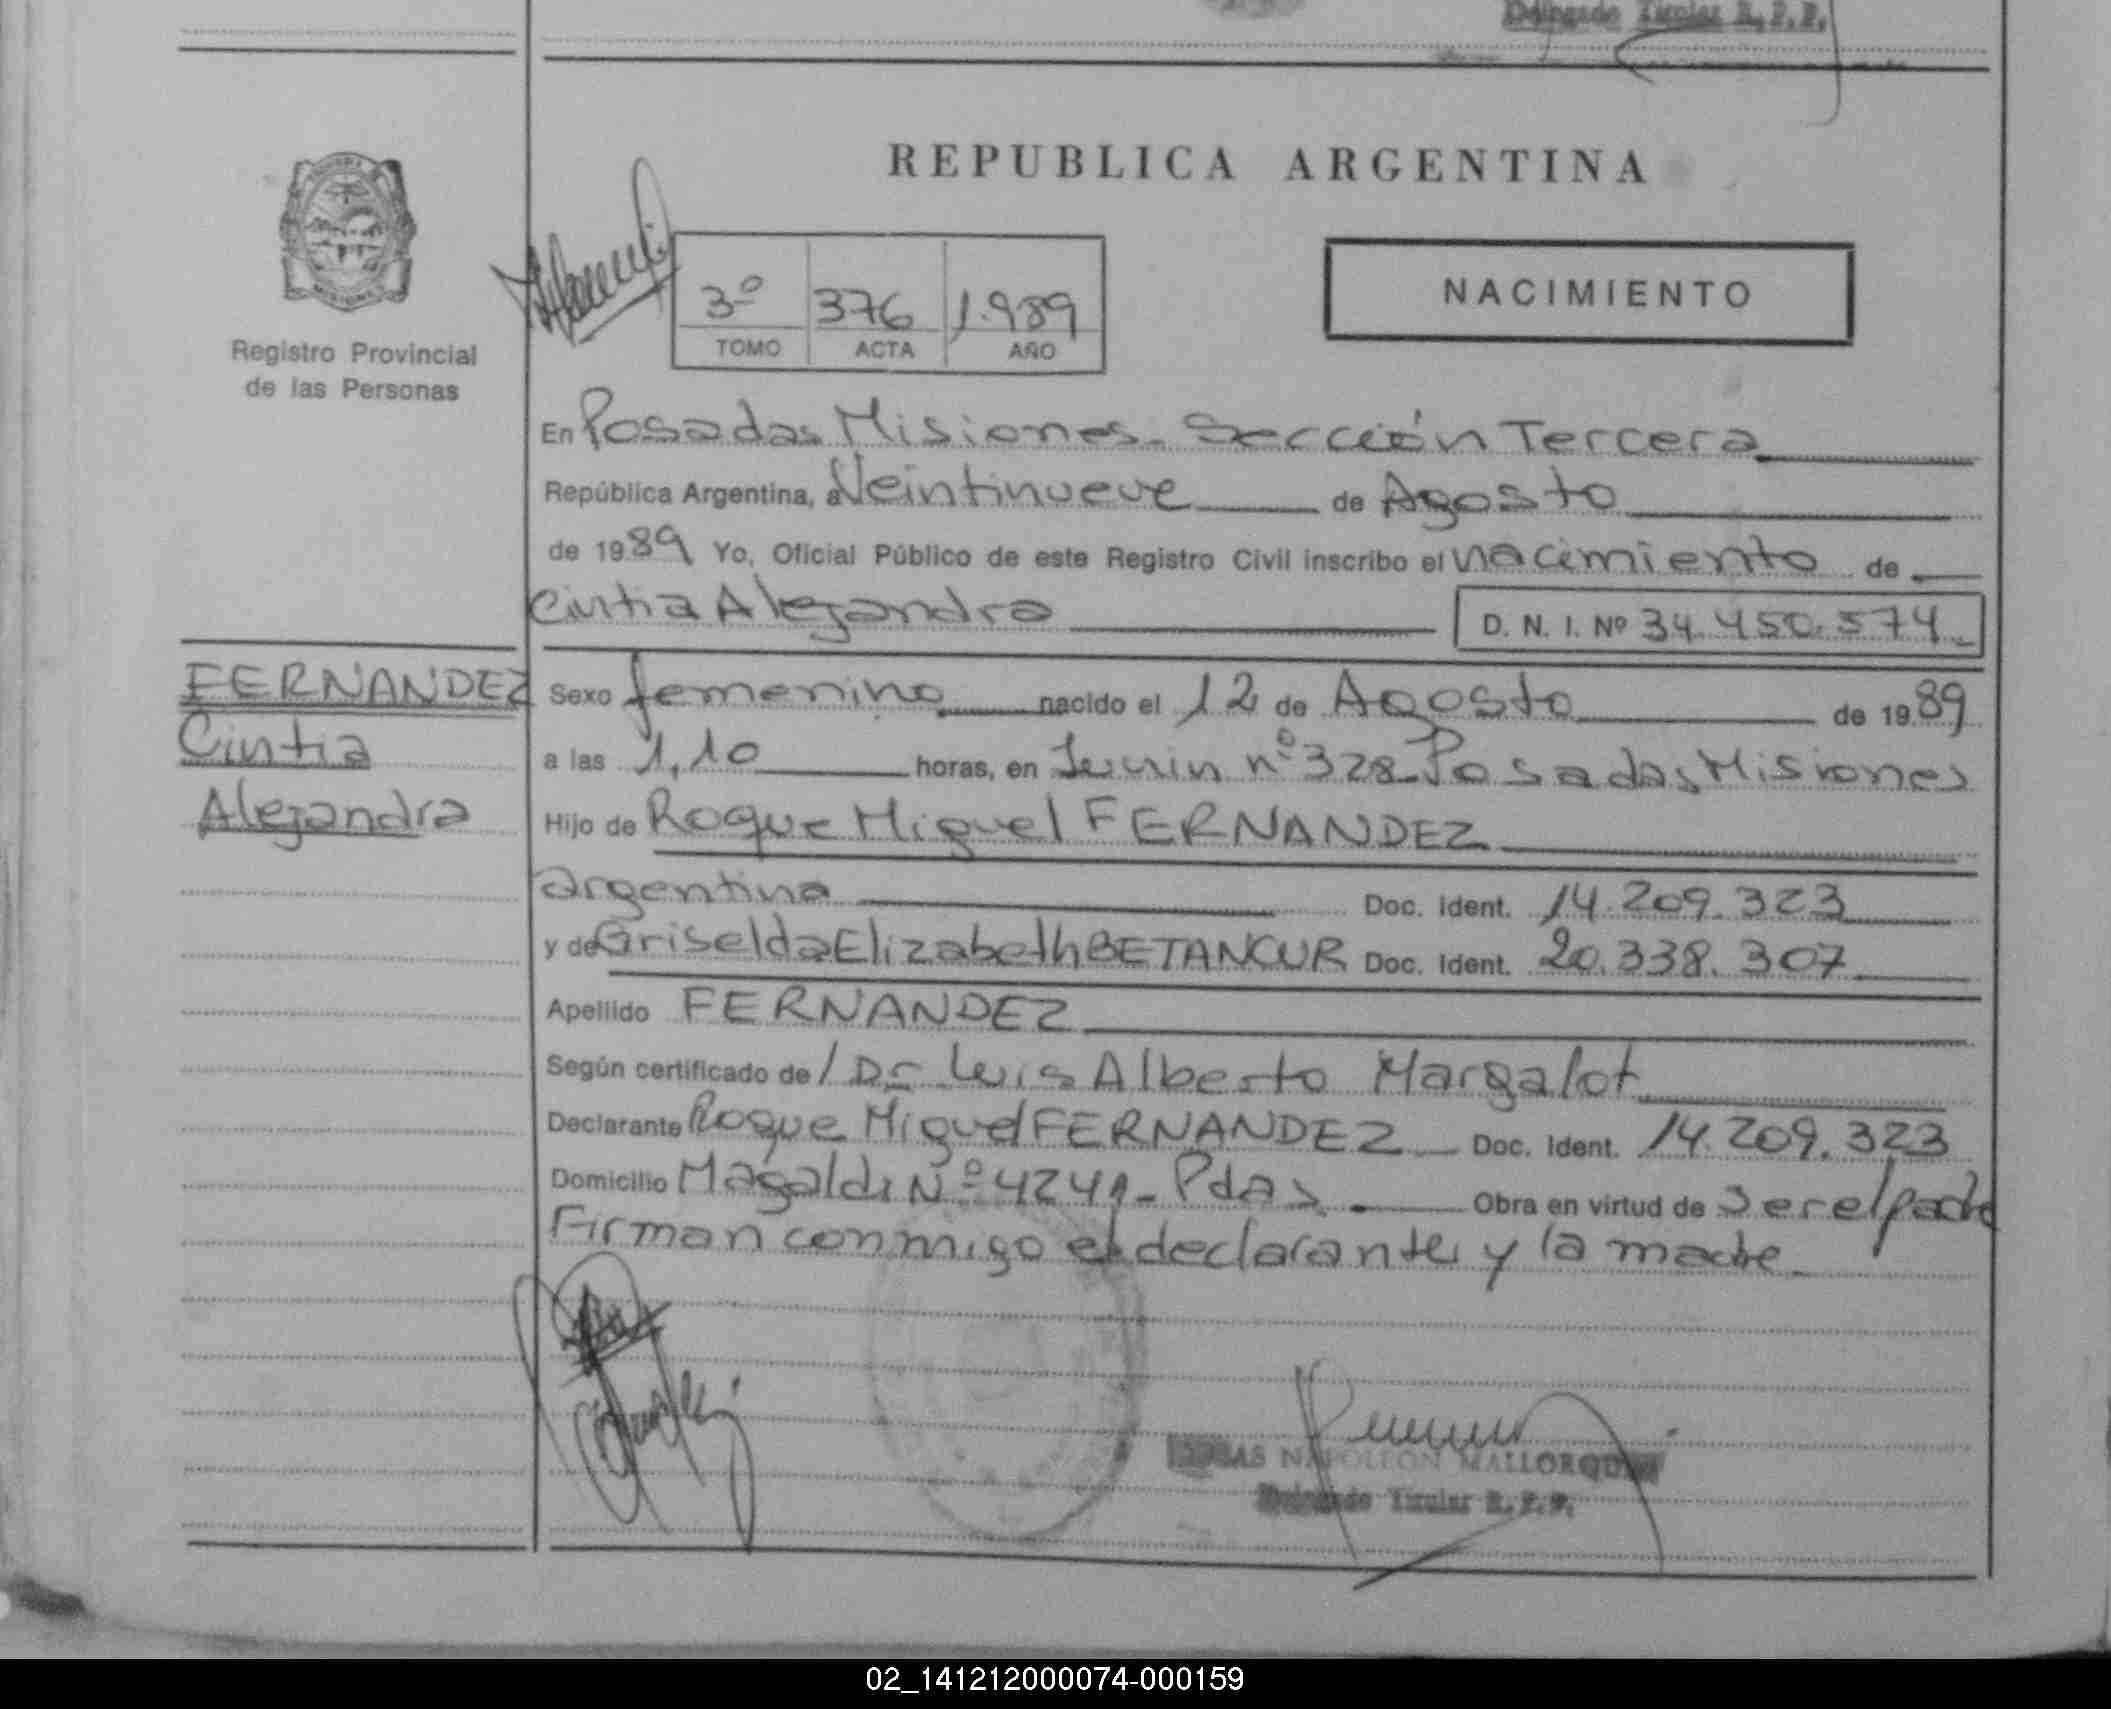 Delegado Titular R. P. P.
REPUBLICA ARGENTINA
Registro Provincial
de las Personas
3º 376 1.989
TOMO ACTA AÑO
NACIMIENTO
En Posadas Misiones. Sección Tercera
República Argentina, a Veintinueve de Agosto
de 1989 Yo, Oficial Público de este Registro Civil inscribo el nacimiento de
Cintia Alejandra D. N. I. Nº 34.450.574_
FERNANDEZ
Cintia
Alejandra
Sexo femenino nacido el 12 de Agosto de 1989
a las 1,10 horas, en Junin nº 328 Posadas Misiones
Hijo de Roque Miguel FERNANDEZ
argentina Doc. Ident. 14.209.323
y de Griselda Elizabeth BETANCUR Doc. Ident. 20.338.307
Apellido FERNANDEZ
Según certificado de / Dr Luis Alberto Margalot
Declarante Roque Miguel FERNANDEZ Doc. Ident. 14.209.323
Domicilio Magaldi Nº 4241 - Pdas Obra en virtud de ser el padre
Firman conmigo el declarante y la madre
NAPOLEON MALLORQUIN
Delegado Titular R. P. P.
02_141212000074-000159